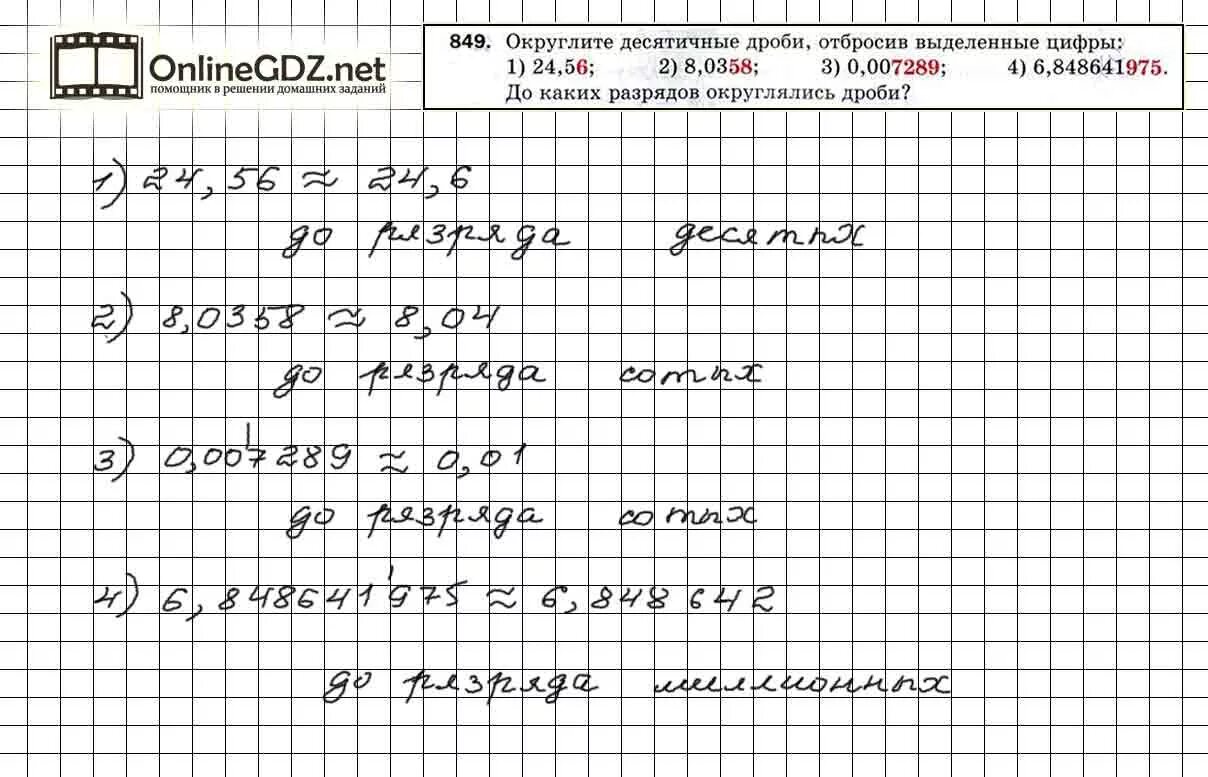 OnlineGDZ.net
помощник в решении домашних заданий
849. Округлите десятичные дроби, отбросив выделенные цифры:
1) 24,56; 2) 8,0358; 3) 0,007289; 4) 6,848641975.
До каких разрядов округлялись дроби?
1) 24,56 ≈ 24,6
до разряда десятых
2) 8,0358 ≈ 8,04
до разряда сотых
3) 0,007289 ≈ 0,01
до разряда сотых
4) 6,848641975 ≈ 6,848642
до разряда миллионных